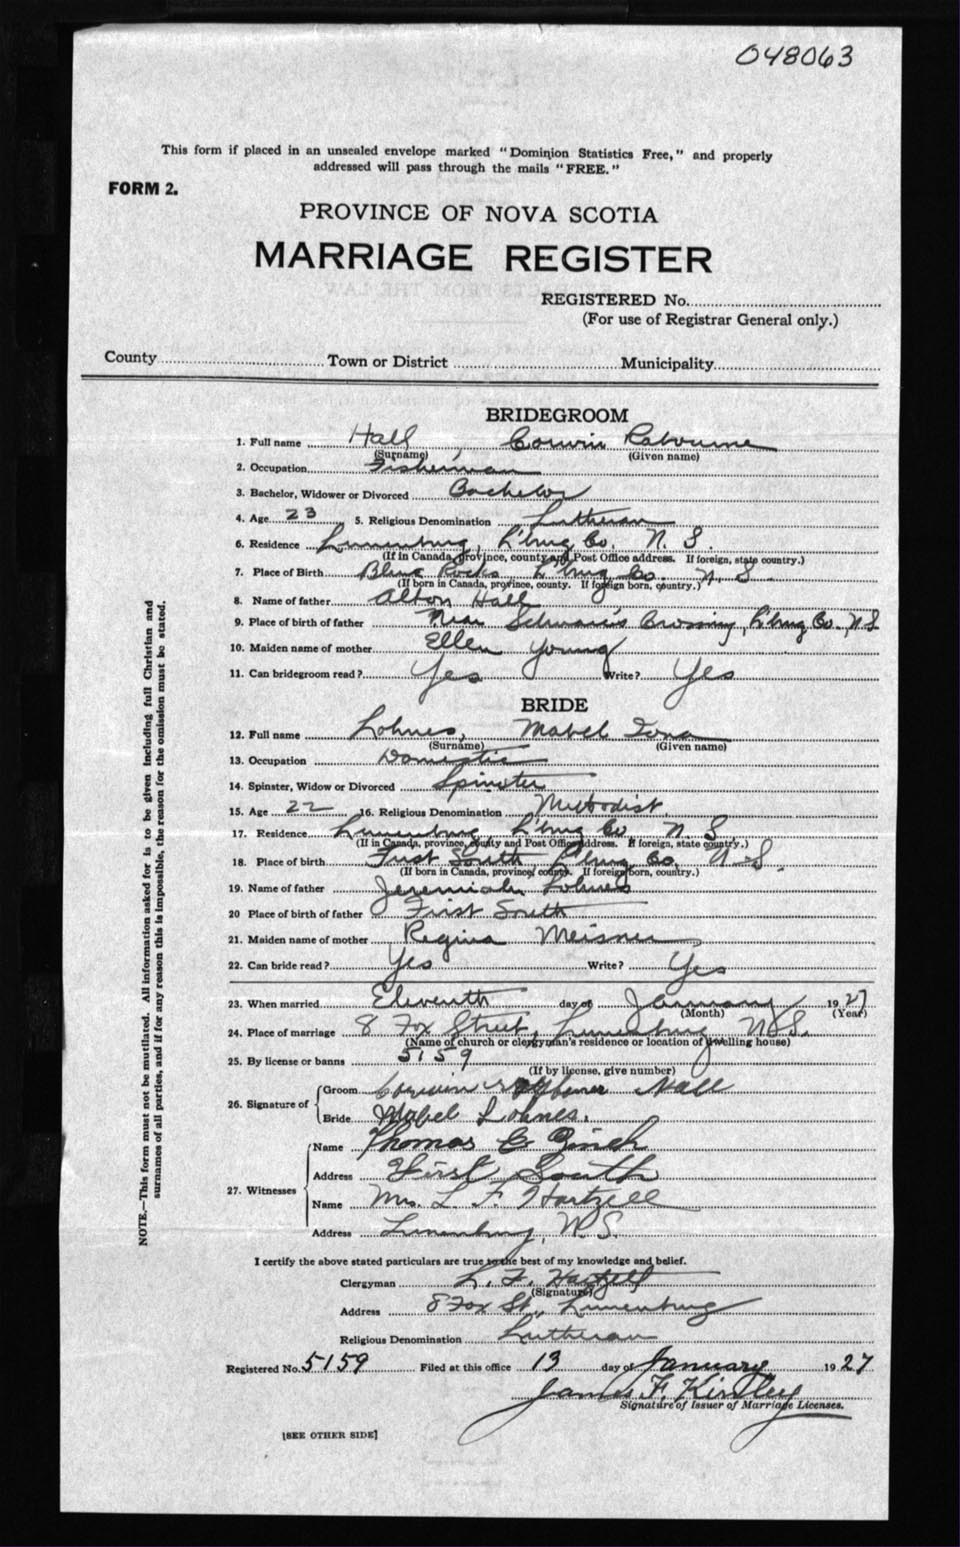 048063
This form if placed in an unsealed envelope marked "Dominion Statistics Free," and properly
addressed will pass through the mails "FREE."
FORM 2.
PROVINCE OF NOVA SCOTIA
MARRIAGE REGISTER
REGISTERED No.
(For use of Registrar General only.)
County Town or District Municipality
BRIDEGROOM
1. Full name Hall, Corwin
(Surname) (Given name)
2. Occupation Fisherman
3. Bachelor, Widower or Divorced Bachelor
4. Age 23 5. Religious Denomination Lutheran
6. Residence Lunenburg, L'burg Co. N. S.
(If in Canada, province, county and Post Office address. If foreign, state country.)
7. Place of Birth Blue Rocks L'burg Co. N. S.
(If born in Canada, province, county. If foreign born, country.)
8. Name of father Alton Hall
9. Place of birth of father Near Crossing, L'burg Co., N.S.
10. Maiden name of mother Ellen Young
11. Can bridegroom read? Yes Write? Yes
BRIDE
12. Full name Lohnes, Mabel Iona
(Surname) (Given name)
13. Occupation Domestic
14. Spinster, Widow or Divorced Spinster
15. Age 22 16. Religious Denomination Methodist
17. Residence Lunenburg, L'burg Co N. S
(If in Canada, province, county and Post Office address. If foreign, state country.)
18. Place of birth First South L'burg Co. N-S.
(If born in Canada, province, county. If foreign born, country.)
19. Name of father Jeremiah Lohnes
20 Place of birth of father First South
21. Maiden name of mother Regina Meisner
22. Can bride read? Yes Write? Yes
23. When married Eleventh day of January 1927
(Month) (Year)
24. Place of marriage 8 Fox Street, Lunenburg N.S.
(Name of church or clergyman's residence or location of dwelling house)
25. By license or banns 5159
(If by license, give number)
26. Signature of Groom Hall
Bride Mabel Lohnes.
27. Witnesses Name Thomas
Address First South
Name Mrs. L. F. Hartzell
Address Lunenburg, N.S.
I certify the above stated particulars are true to the best of my knowledge and belief.
Clergyman L. F. Hartzell
(Signature)
Address 8 Fox St., Lunenburg
Religious Denomination Lutheran
Registered No. 5159 Filed at this office 13 day of January 1927
James F. Kinley
Signature of Issuer of Marriage Licenses.
[SEE OTHER SIDE]
NOTE.—This form must not be mutilated. All information asked for is to be given including full Christian and
surnames of all parties, and if for any reason this is impossible, the reason for the omission must be stated.